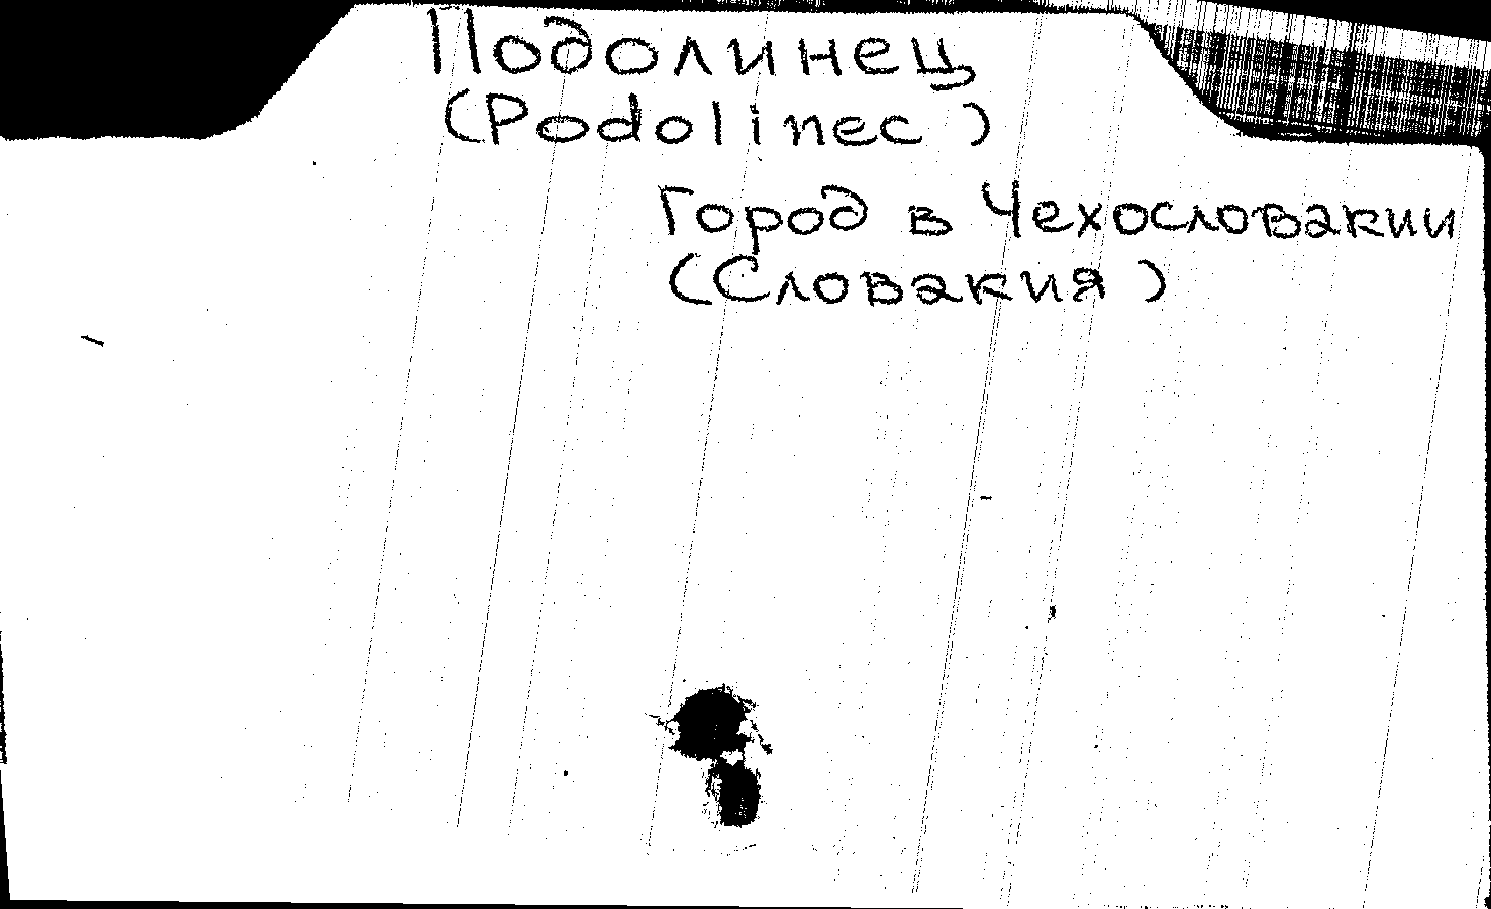 Подолинец
(Podolinec)
Город в Чехословакии
(Словакия)